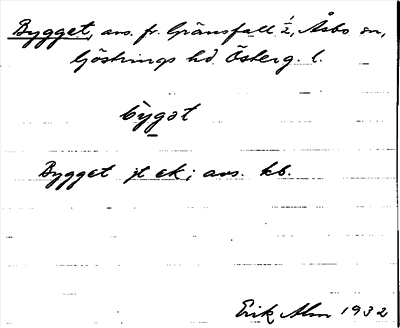 Bygget, avs. fr. Gränsfall ½, Åsbo sn,
Göstrings hd. Österg. l.
bygət
Bygget jt ek; avs. kb.
Erik Alm 1932